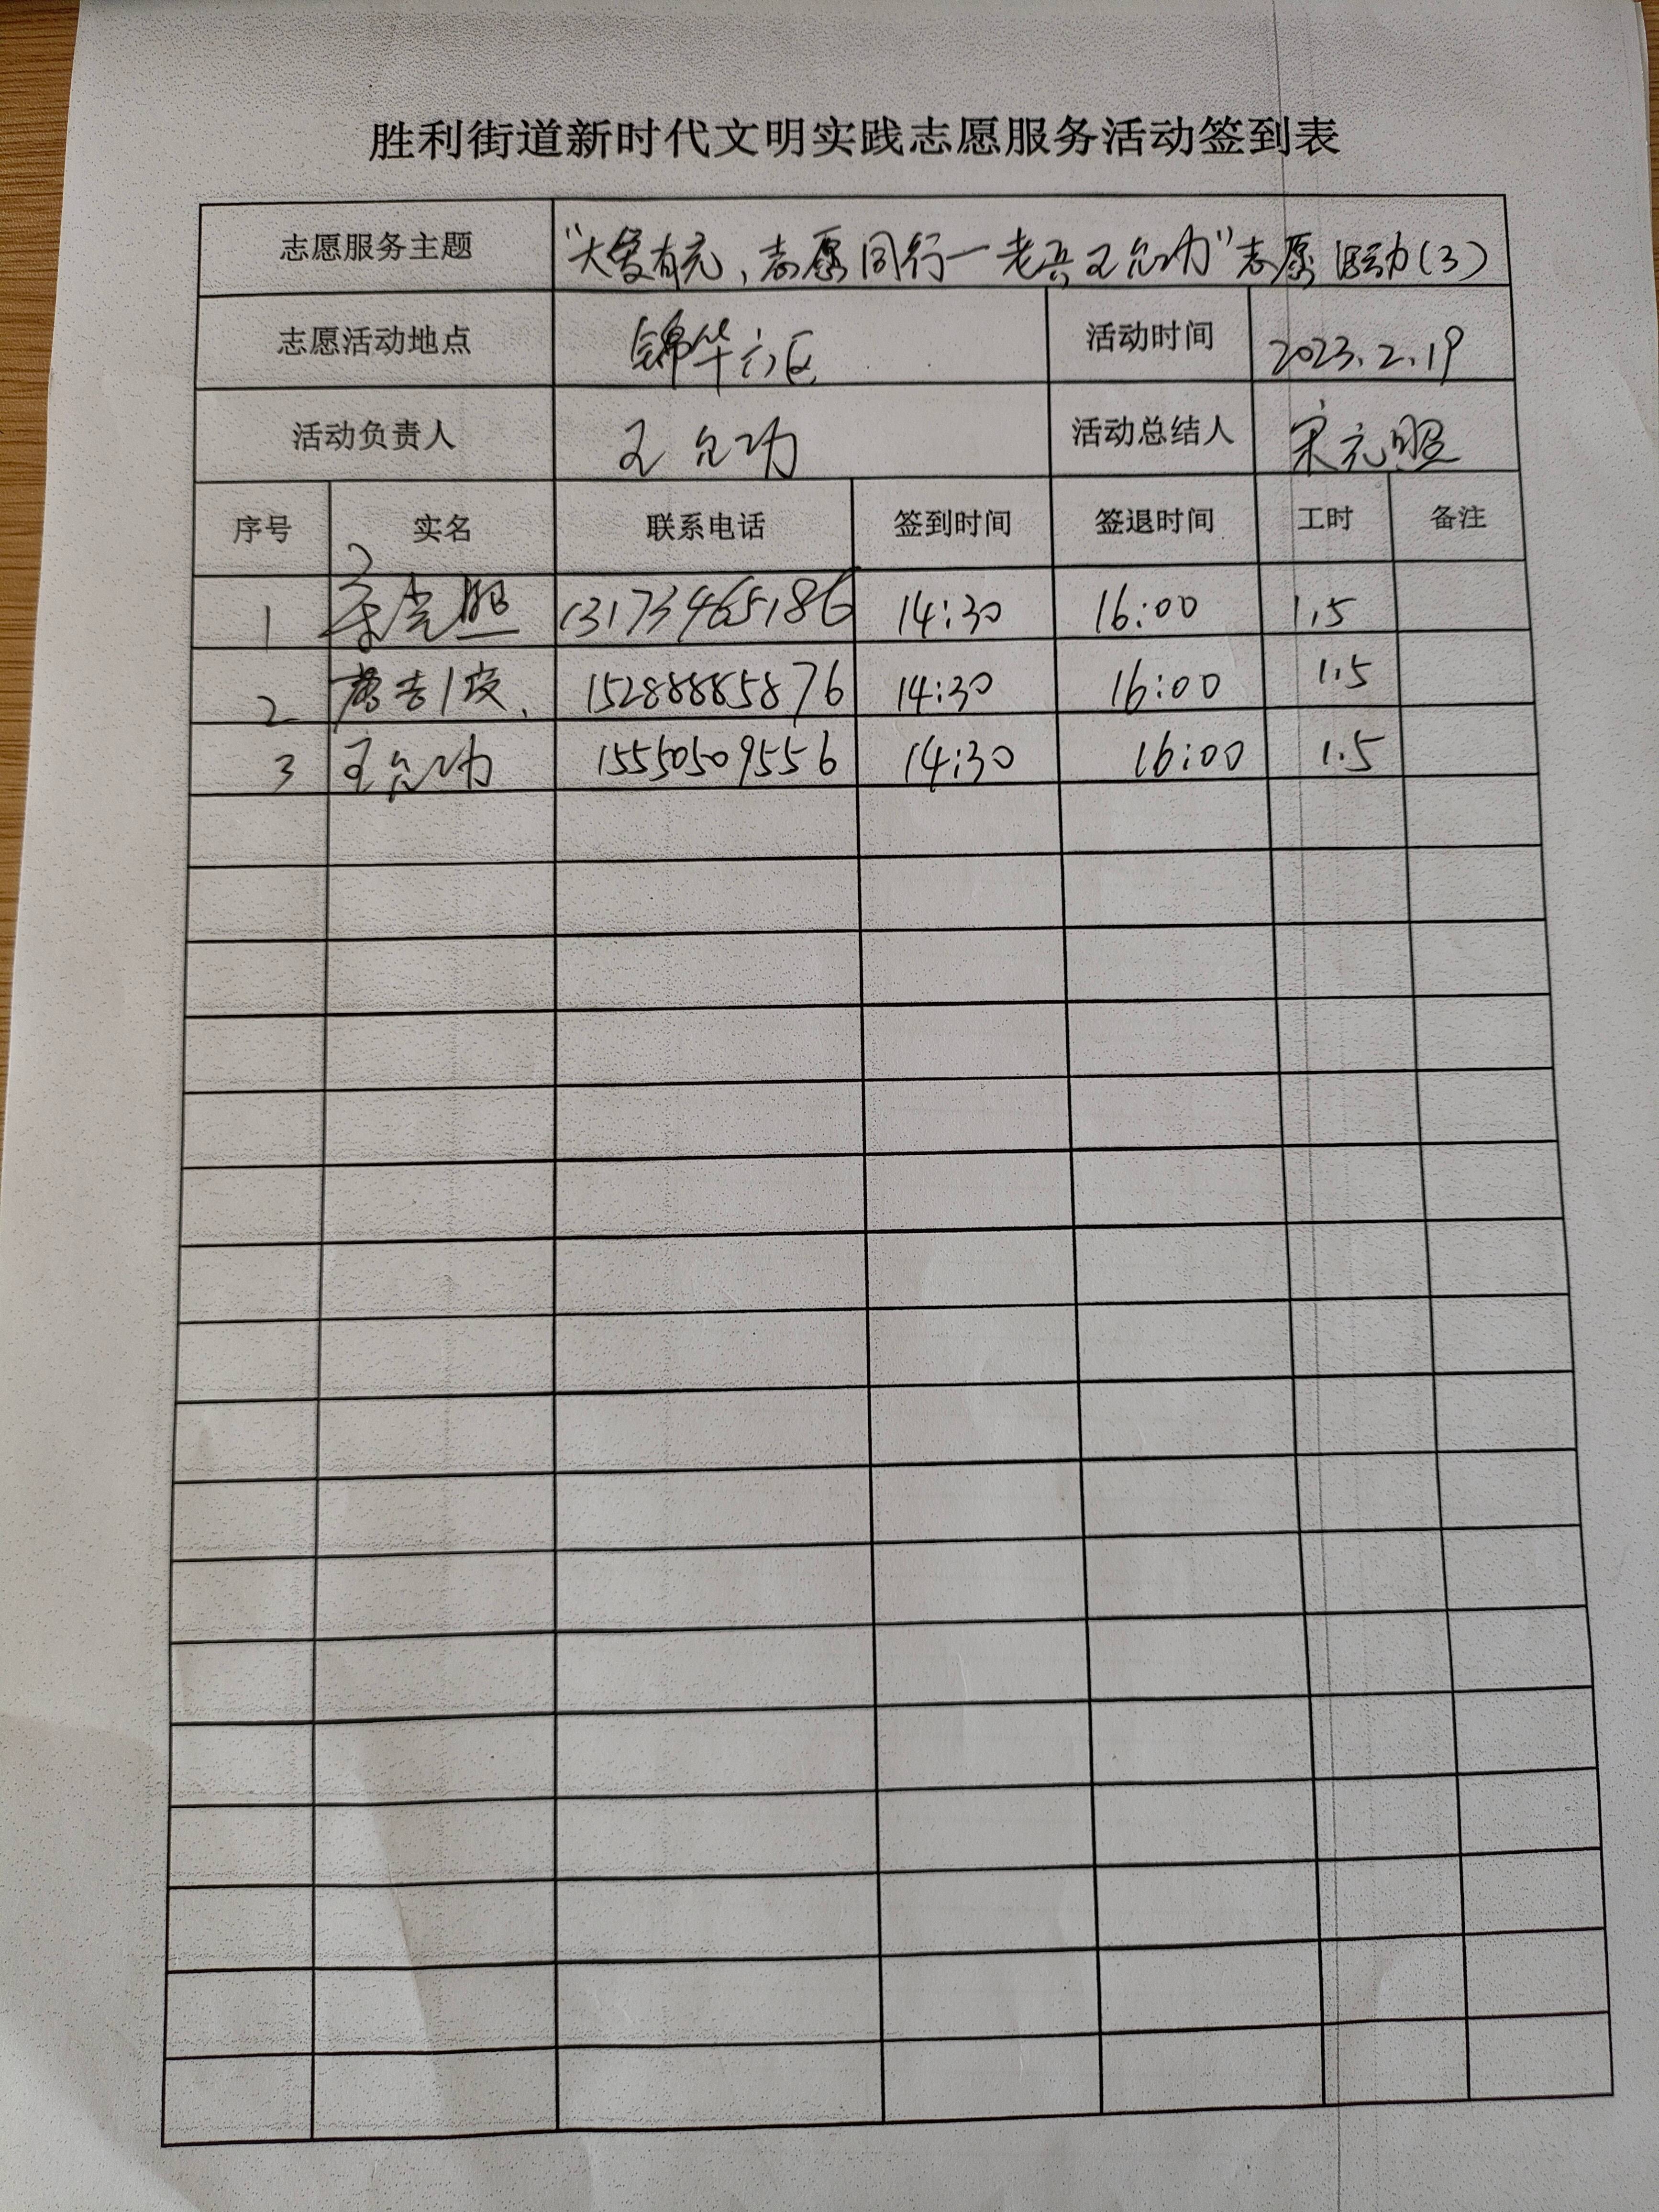 胜利街道新时代文明实践志愿服务活动签到表
志愿服务主题 "大爱有充、志愿同行一老兵王允功"志愿活动(3)
志愿活动地点 锦华六区 活动时间 2023.2.19
活动负责人 王允功 活动总结人 宋元照
序号 实名 联系电话 签到时间 签退时间 工时 备注
1 13173465186 14:30 16:00 1.5
2 15288885876 14:30 16:00 1.5
3 王允功 15550509556 14:30 16:00 1.5